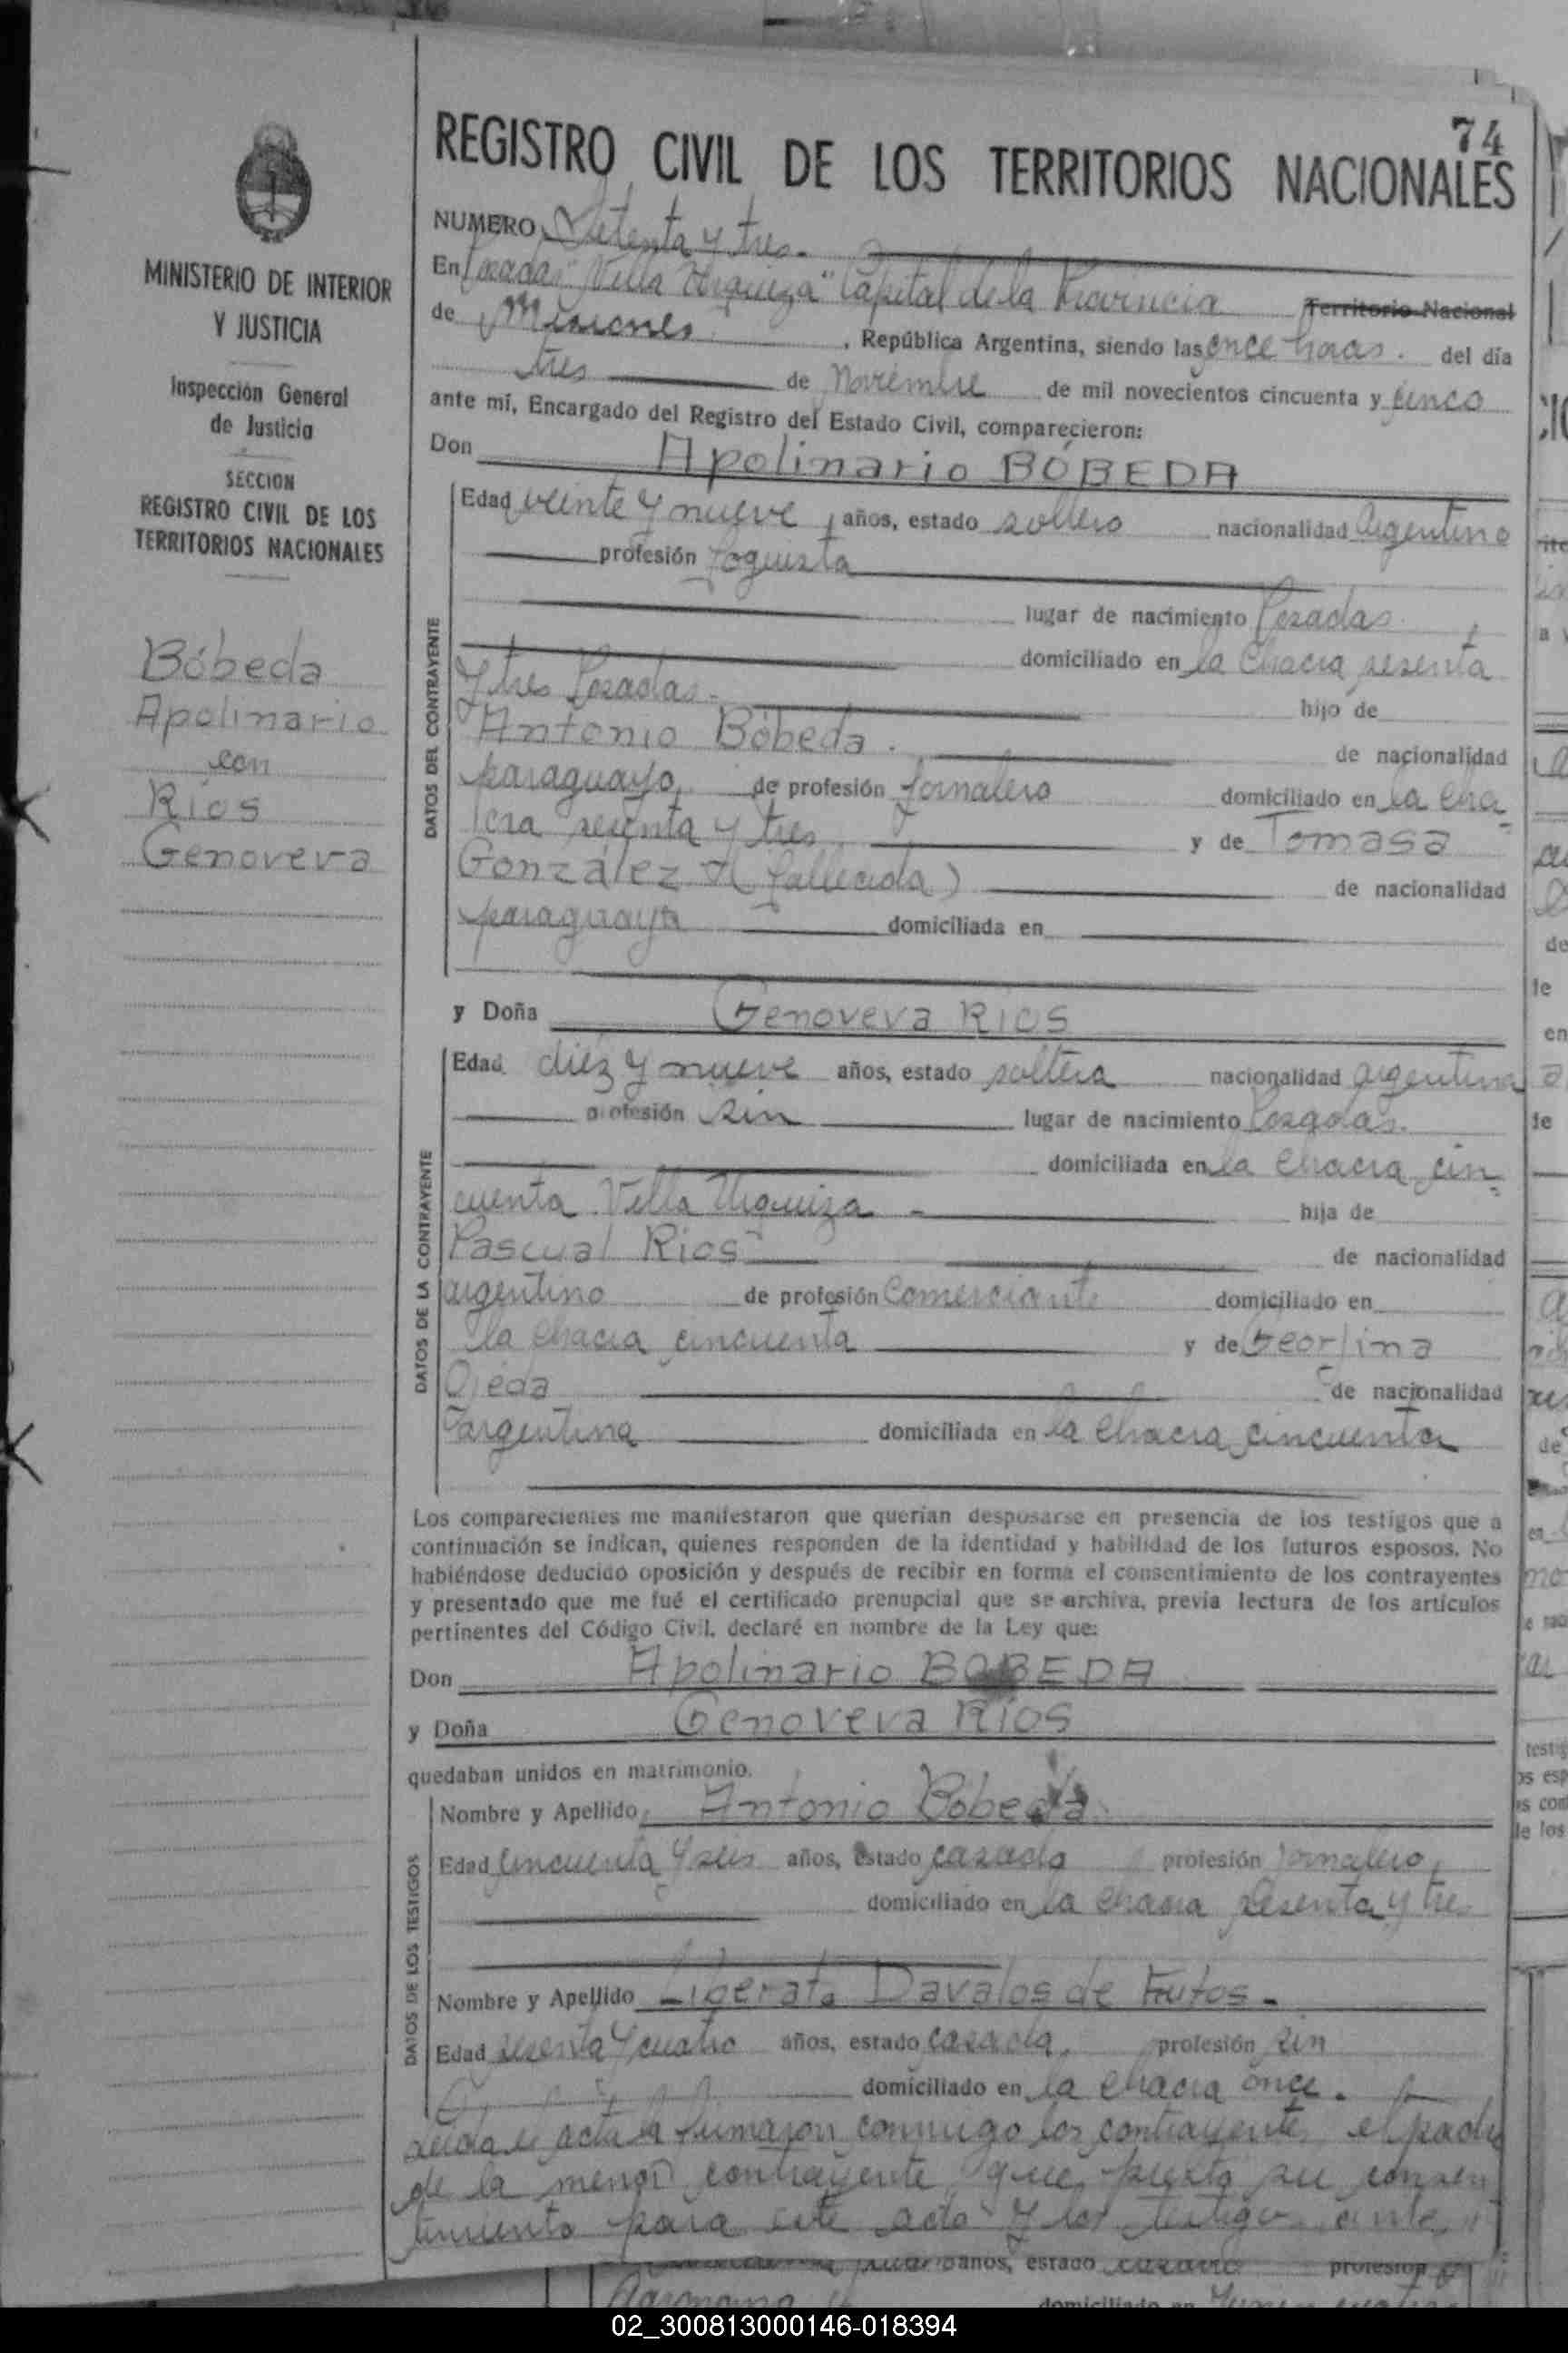 74
REGISTRO CIVIL DE LOS TERRITORIOS NACIONALES
MINISTERIO DE INTERIOR
Y JUSTICIA
Inspección General
de Justicia
SECCION
REGISTRO CIVIL DE LOS
TERRITORIOS NACIONALES
Bóbeda
Apolinario
con
Ríos
Genoveva
NUMERO Setenta y tres.
En Posadas "Villa Urquiza" Capital de la Provincia Territorio Nacional
de Misiones, República Argentina, siendo las once horas. del día
tres de Noviembre de mil novecientos cincuenta y cinco
ante mí, Encargado del Registro del Estado Civil, comparecieron:
Don Apolinario BÓBEDA
DATOS DEL CONTRAYENTE
Edad veinte y nueve, años, estado soltero nacionalidad Argentino
profesión foguista
lugar de nacimiento Posadas.
domiciliado en la Chacra sesenta
y tres Posadas.- hijo de
Antonio Bóbeda. de nacionalidad
paraguayo, de profesión jornalero domiciliado en la cha
cra sesenta y tres y de Tomasa
González (fallecida) de nacionalidad
paraguaya domiciliada en
y Doña Genoveva Ríos
DATOS DE LA CONTRAYENTE
Edad diez y nueve años, estado soltera nacionalidad argentina
profesión sin lugar de nacimiento Posadas.
domiciliada en la Chacra cin
cuenta Villa Urquiza - hija de
Pascual Rios de nacionalidad
argentino de profesión Comerciante domiciliado en
la chacra cincuenta y de Georjina
Ojeda de nacionalidad
argentina domiciliada en la Chacra cincuenta
Los comparecientes me manifestaron que querían desposarse en presencia de los testigos que a
continuación se indican, quienes responden de la identidad y habilidad de los futuros esposos. No
habiéndose deducido oposición y después de recibir en forma el consentimiento de los contrayentes
y presentado que me fué el certificado prenupcial que se archiva, previa lectura de los artículos
pertinentes del Código Civil, declaré en nombre de la Ley que:
Don Apolinario BOBEDA
y Doña Genoveva Ríos
quedaban unidos en matrimonio.
DATOS DE LOS TESTIGOS
Nombre y Apellido Antonio Bóbeda
Edad cincuenta y seis años, estado casado profesión jornalero,
domiciliado en la chacra sesenta y tres
Nombre y Apellido Liberata Davalos de Frutos.-
Edad sesenta y cuatro años, estado casada, profesión sin
domiciliado en la chacra once.
Leida el acta la firmaron conmigo los contrayentes el padre
de la menor contrayente que presta su consen
timiento para este acto y los testigos ante
años, estado casado profesión
domiciliado en
02_300813000146-018394